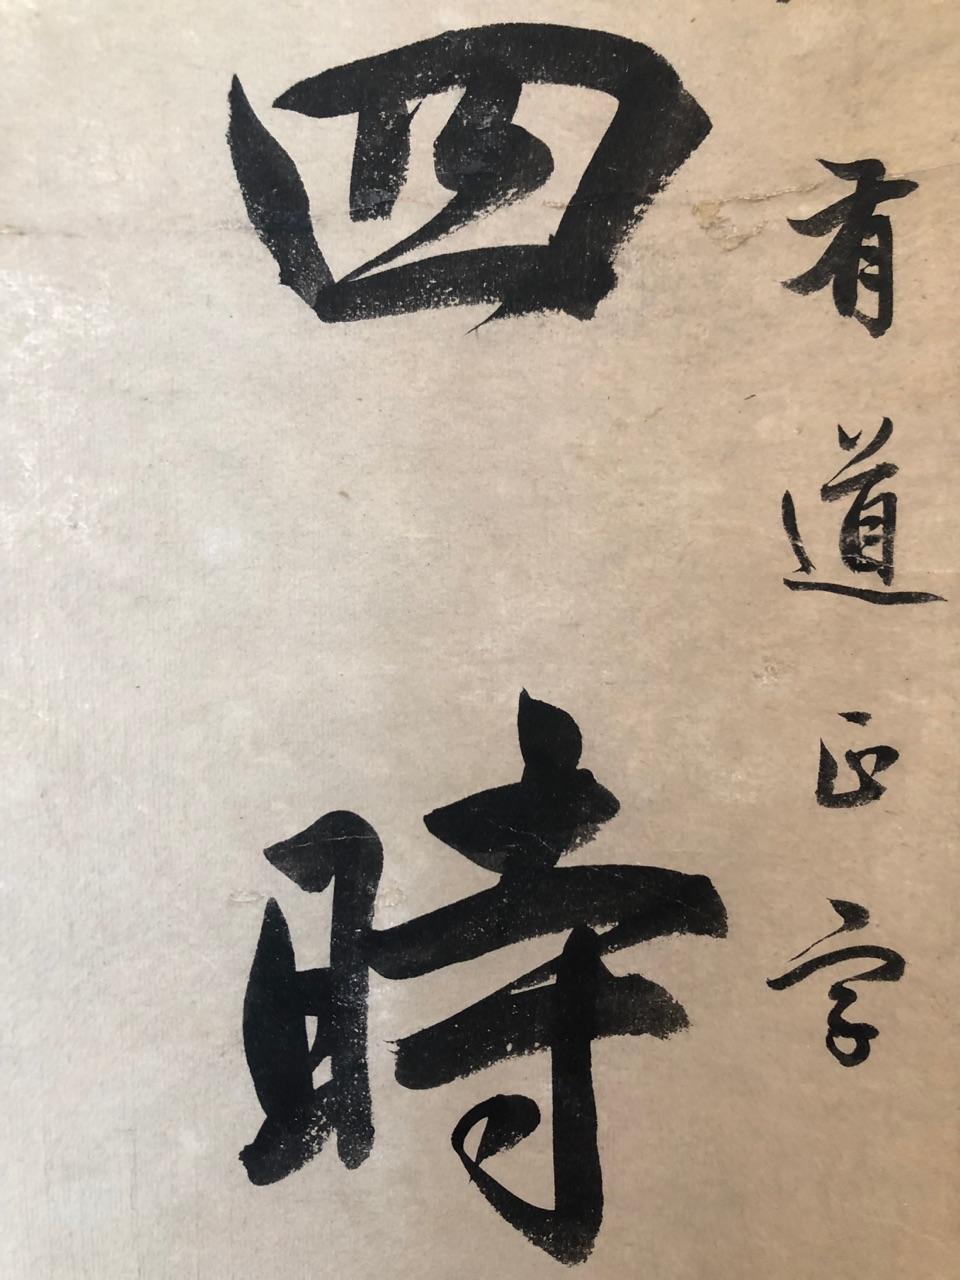 有道正字
四時